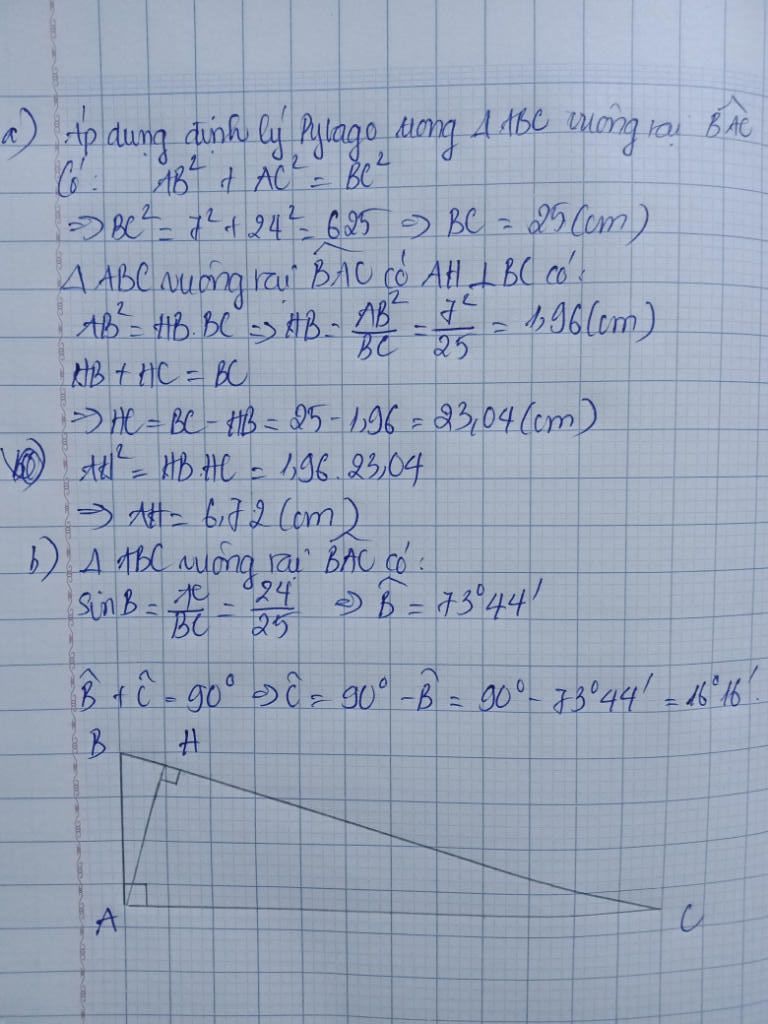 a) Áp dụng định lý Pytago trong Δ ABC vuông tại \widehat{BAC}
Có: AB² + AC² = BC²
⇒ BC² = 7² + 24² = 625 ⇒ BC = 25 (cm)
Δ ABC vuông tại \widehat{BAC} có AH ⊥ BC có:
AB² = HB.BC ⇒ HB = \frac{AB²}{BC} = \frac{7²}{25} = 1,96 (cm)
HB + HC = BC
⇒ HC = BC - HB = 25 - 1,96 = 23,04 (cm)
AH² = HB.HC = 1,96 . 23,04
⇒ AH = 6,72 (cm)
b) Δ ABC vuông tại \widehat{BAC} có:
sin B = \frac{AC}{BC} = \frac{24}{25} ⇒ \widehat{B} = 73°44'
\widehat{B} + \widehat{C} = 90° ⇒ \widehat{C} = 90° - \widehat{B} = 90° - 73°44' = 16°16'.
B H
A C